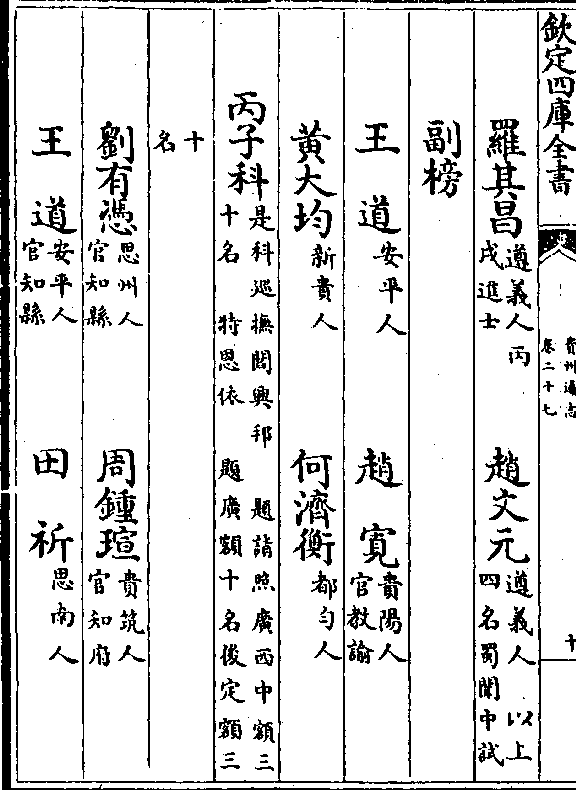 欽定四庫全書
貴州通志
卷二十七
十
羅其昌遵義人丙戌進士 趙文元遵義人 以上四名蜀闈中試
副榜
王道安平人 趙寬貴陽人官教諭
黃大均新貴人 何濟衡都勻人
丙子科是科巡撫閻興邦 題請照廣西中額三十名 特恩依 題廣額十名後定額三
十名
劉有憑思州人官知縣 周鍾瑄貴筑人官知府
王道安平人官知縣 田祈思南人